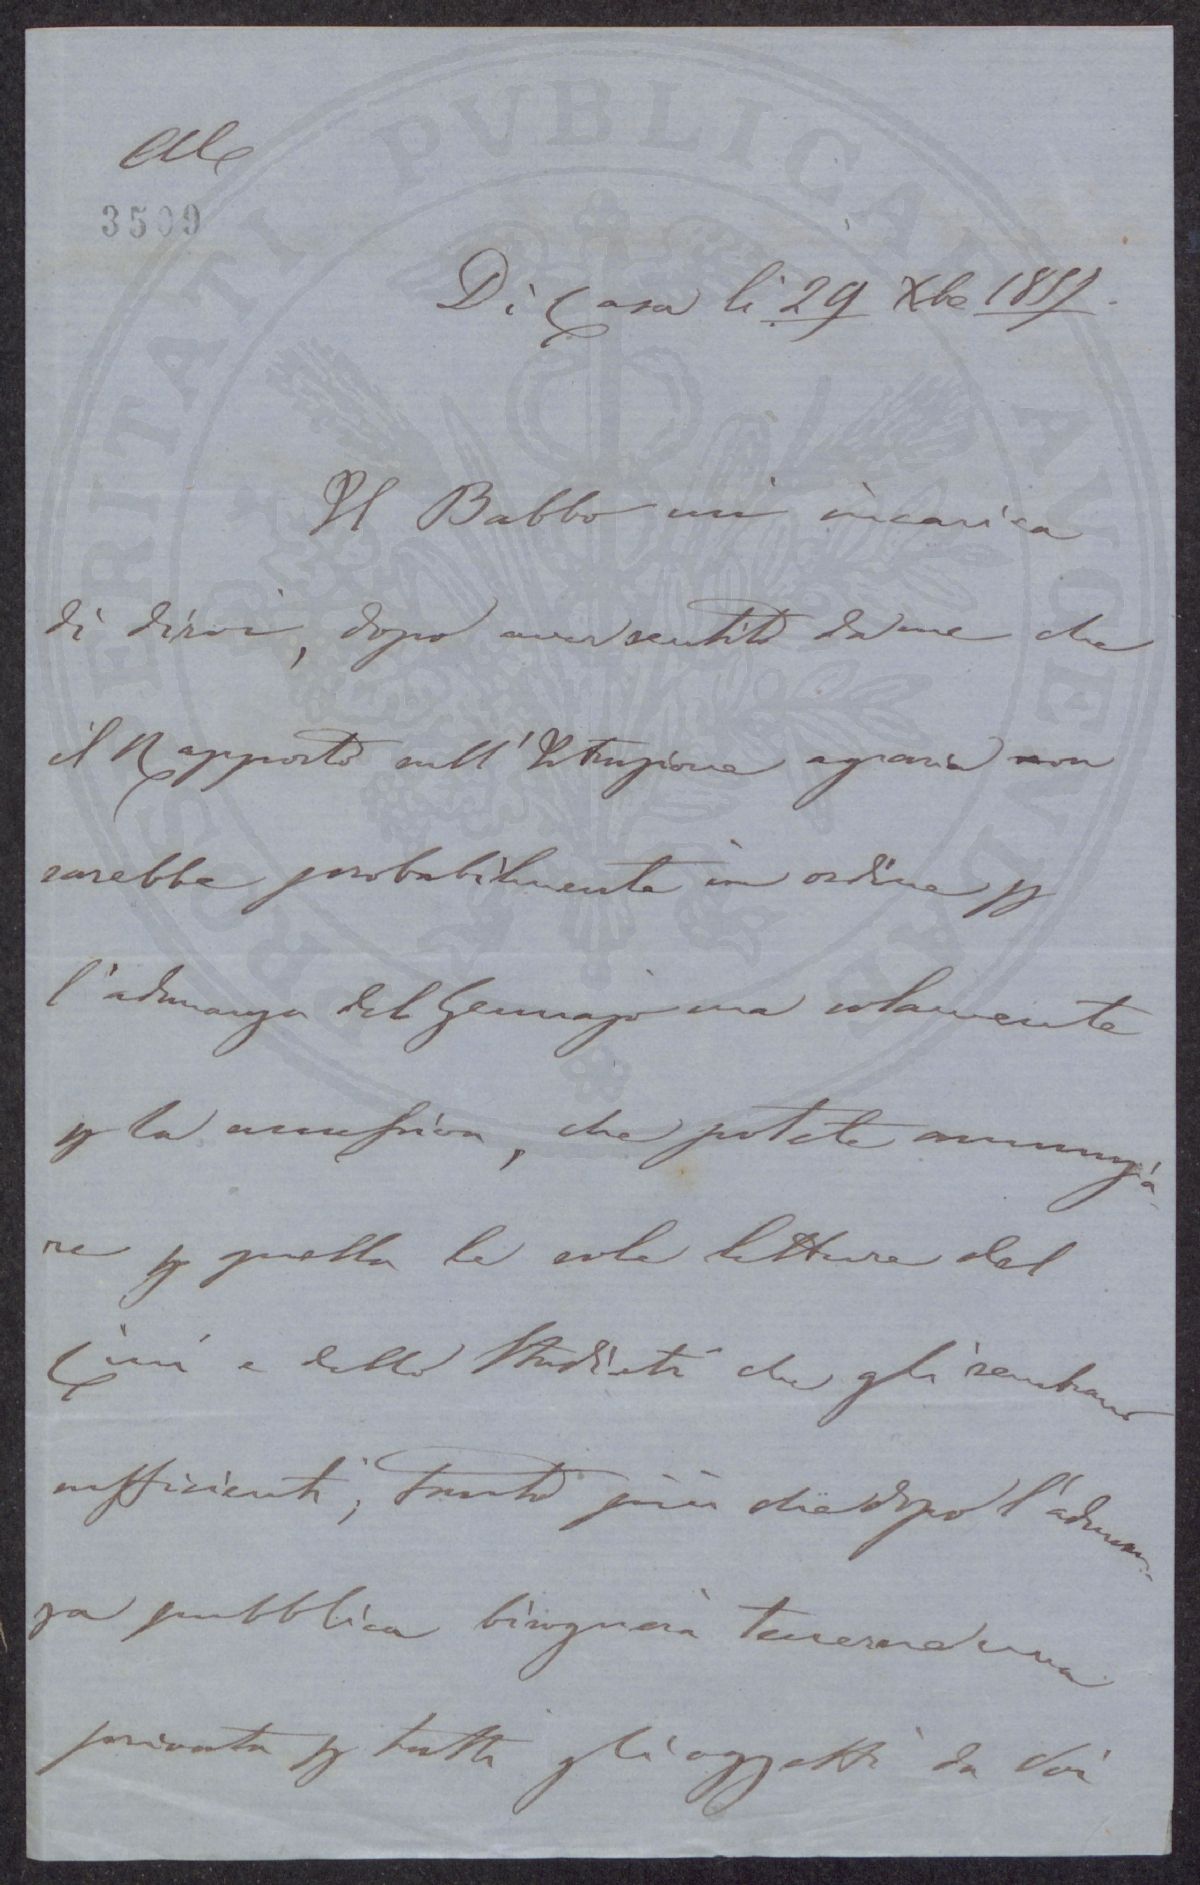 3509
Di Casa li 29 Xbe 1857.
Il Babbo mi incarica
di dirvi, dopo aver sentito da me che
il Rapporto sull'Istruzione agraria non
sarebbe probabilmente in ordine p
l'adunanza del Gennajo ma solamente
p la , che potete annunzia-
re p quella le sole letture del
e dello Studiati che gli sembrano
sufficienti; tanto più che dopo l'adunan-
za pubblica bisognerà tenerne una
privata p tutti gli oggetti da Voi
PROSPERITATI PVBLICAE AVGENDAE